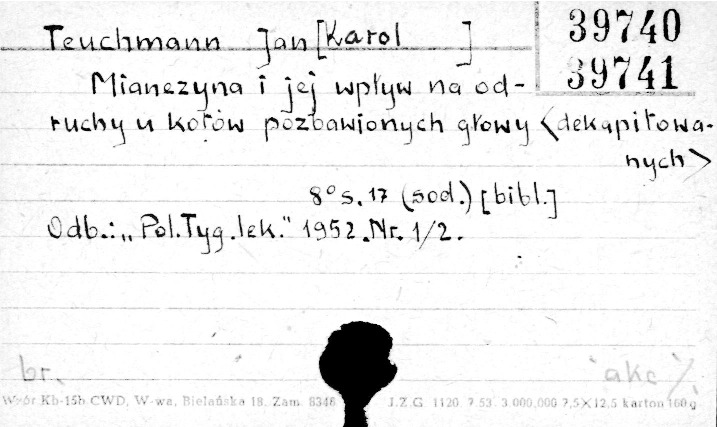 39740
39741
Teuchmann Jan [Karol ]
Mianezyna i jej wpływ na od-
ruchy u kotów pozbawionych głowy <dekapitowa-
nych>
8° s. 17 (sod.) [bibl.]
Odb.: „Pol.Tyg.lek." 1952.Nr. 1/2.
br.
akc
Wzór Kb-15b CWD, W-wa, Bielańska 18. Zam. 8346 J.Z.G. 1120 7.53. 3.000.000 7,5×12,5 karton 160 g